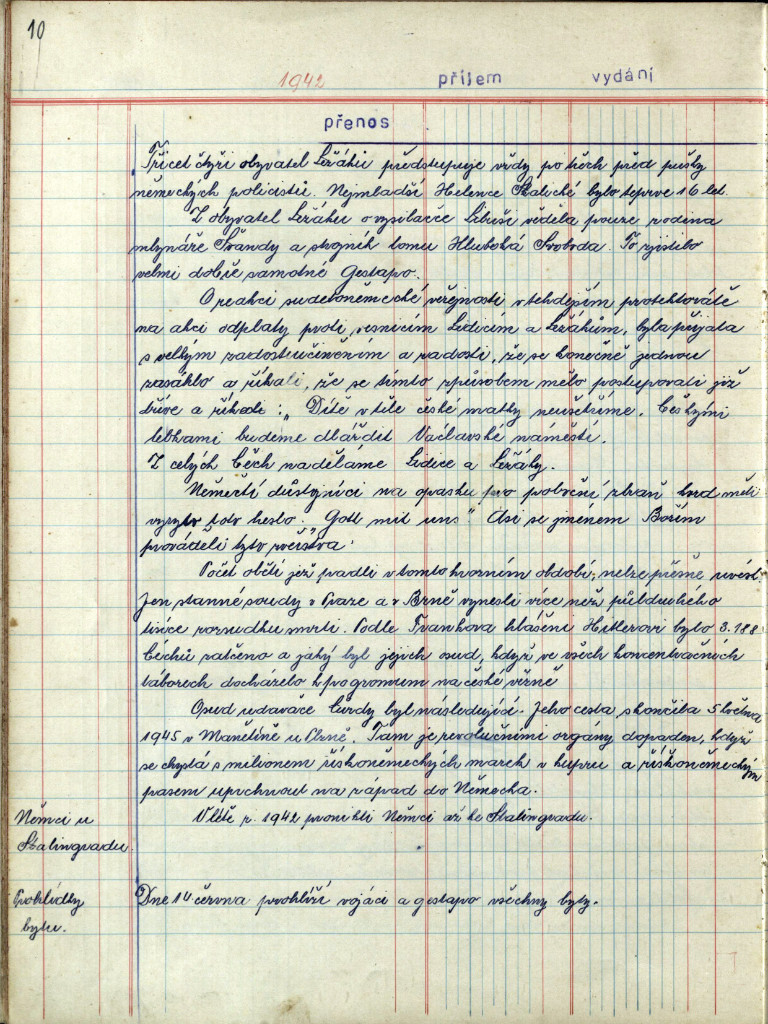 10
1942 příjem vydání
přenos
Třicet čtyři obyvatel Ležáků předstupuje vždy po třech před pušky
německých policistů. Nejmladší Helence Skalické bylo teprve 16 let.
Z obyvatel Ležáků o vysílačce Libuši věděla pouze rodina
mlynáře Švandy a strojník lomu Hluboká Svoboda. To zjistilo
velmi dobře samotné Gestapo.
O reakci sudetoněmecké veřejnosti v tehdejším protektorátě
na akci odplaty proti vesnicím Lidicím a Ležákům, byla přijata
s velkým zadostiučiněním a radostí, že se konečně jednou
zasáhlo a říkali, že se tímto způsobem mělo postupovati již
dříve a říkali: „Dítě v těle české matky neušetříme. Českými
lebkami budeme dláždit Václavské náměstí.
Z celých Čech naděláme Lidice a Ležáky.
Němečtí důstojníci na opasku pro poboční zbraň kord měli
vyryto toto heslo: „Gott mit uns" Asi se jménem Božím
prováděli tyto zvěrstva.
Počet obětí jež padli v tomto hrozném období, nelze přesně uvést.
Jen stanné soudy v Praze a v Brně vynesli více než půldruhého
tisíce rozsudků smrti. Podle Frankova hlášení Hitlerovi bylo 3.188
Čechů zatčeno a jaký byl jejich osud, když ve všech koncentračních
táborech docházelo k pogromum na české vězně
Osud udavače Čurdy byl následující. Jeho cesta skončila 5 května
1945 v Manětíně u Plzně. Tam je revolučními orgány dopaden, když
se chystá s milionem říškoněmeckých marek v kupru a říškoněmeckým
pasem uprchnout na západ do Německa.
Němci u V létě r. 1942 pronikli Němci až ke Stalingradu.
Stalingradu.
Prohlídky Dne 14 června prohlíží vojáci a gestapo všechny byty.
bytu.